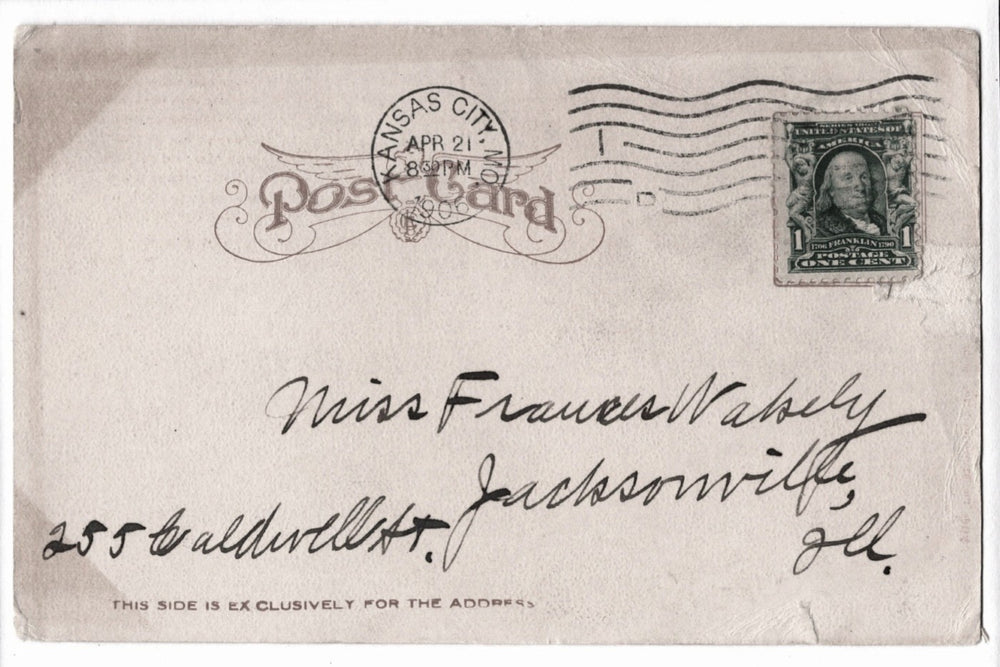 KANSAS CITY, MO
APR 21
8 30 PM
1906
Post Card
SERIES 1902
UNITED STATES OF
AMERICA
1 1
1706 FRANKLIN 1790
POSTAGE
ONE CENT
Miss Frances Wakely
Jacksonville,
255 Caldwell St.
Ill.
THIS SIDE IS EXCLUSIVELY FOR THE ADDRESS